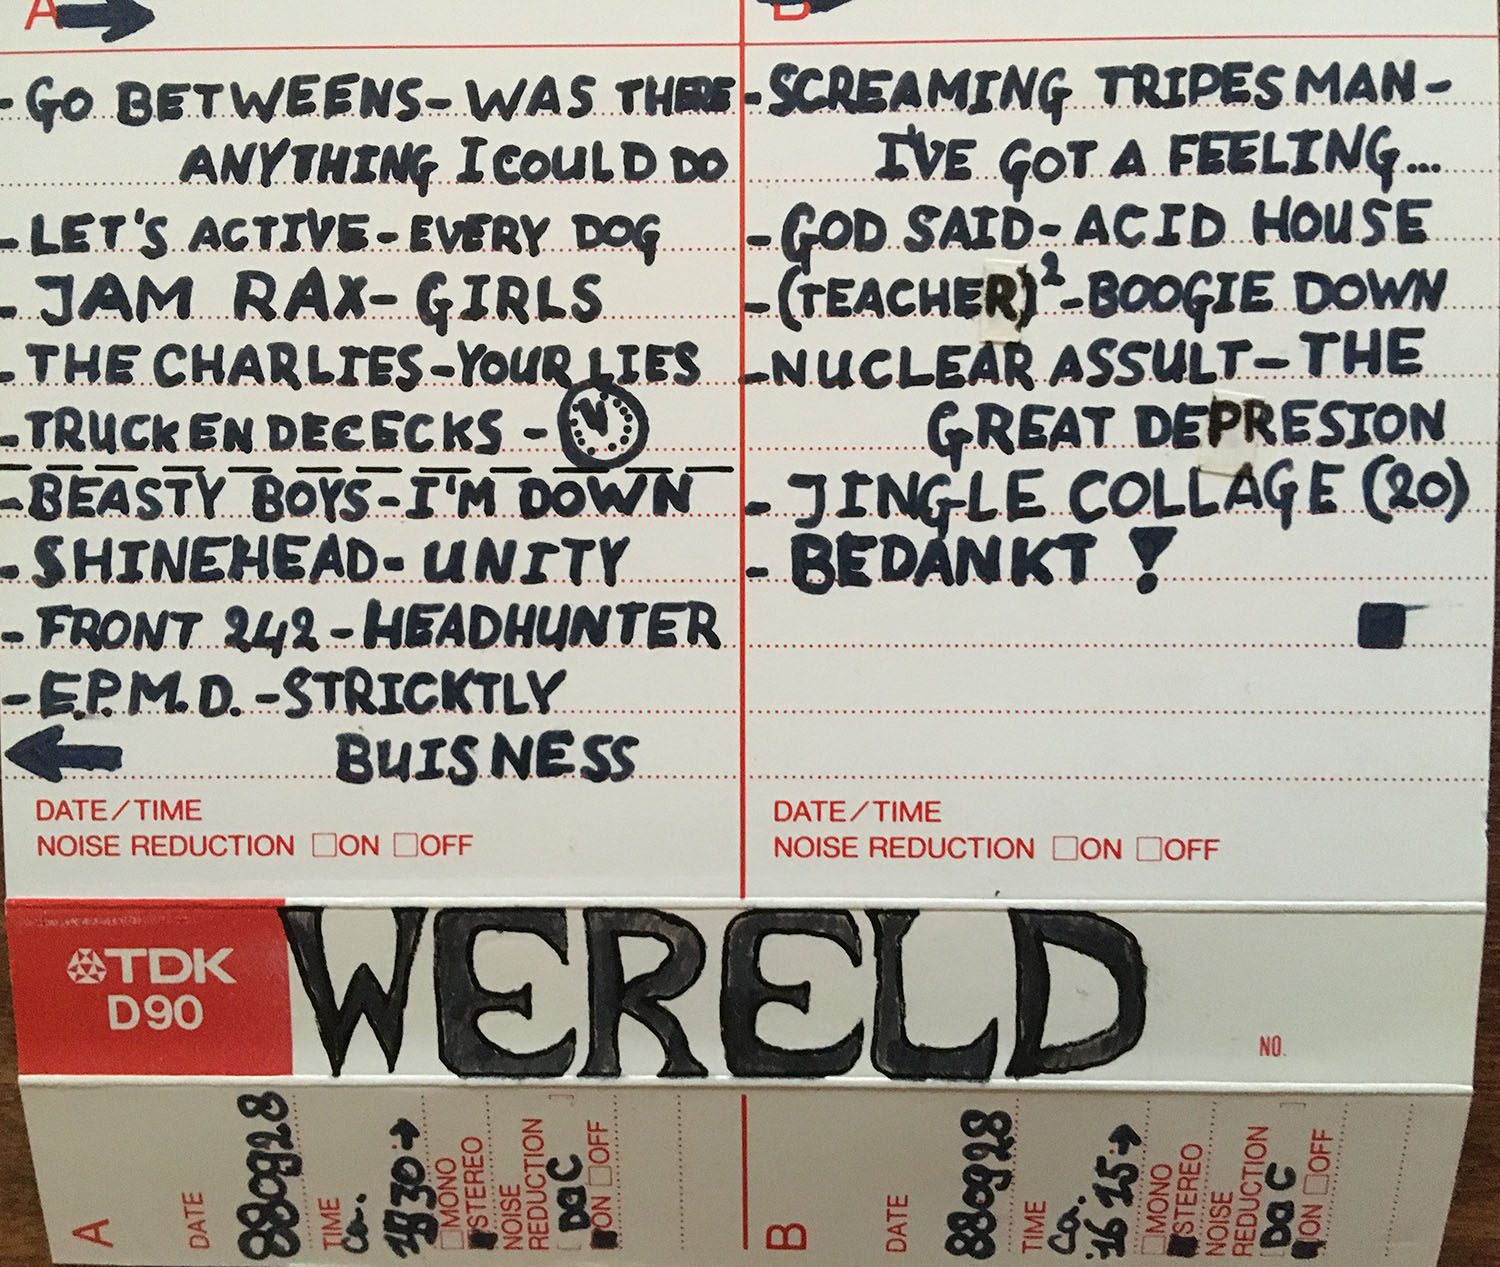 A
- GO BETWEENS - WAS THERE
ANYTHING I COULD DO
- LET'S ACTIVE - EVERY DOG
- JAM RAX - GIRLS
- THE CHARLIES - YOUR LIES
- TRUCKENDECECKS -
- BEASTY BOYS - I'M DOWN
- SHINEHEAD - UNITY
- FRONT 242 - HEADHUNTER
- E.P.M.D. - STRICKTLY
BUISNESS
DATE/TIME
NOISE REDUCTION □ON □OFF
B
- SCREAMING TRIPESMAN -
I'VE GOT A FEELING...
- GOD SAID - ACID HOUSE
- (TEACHER)² - BOOGIE DOWN
- NUCLEAR ASSULT - THE
GREAT DEPRESION
- JINGLE COLLAGE (20)
- BEDANKT !
DATE/TIME
NOISE REDUCTION □ON □OFF
TDK
D90
WERELD
NO.
A
DATE
880928
TIME
Ca.
30 →
□MONO
■STEREO
NOISE
REDUCTION
[ D a C ]
■ON □OFF
B
DATE
880928
TIME
Ca.
16 15 →
□MONO
■STEREO
NOISE
REDUCTION
[ D a C ]
■ON □OFF